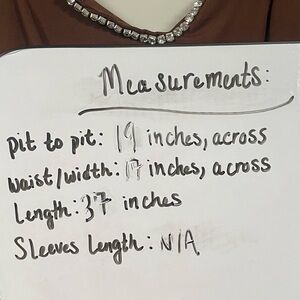 Measurements:
pit to pit: 19 inches, across
Waist/width: 17 inches, across
Length: 37 inches
Sleeves Length: N/A